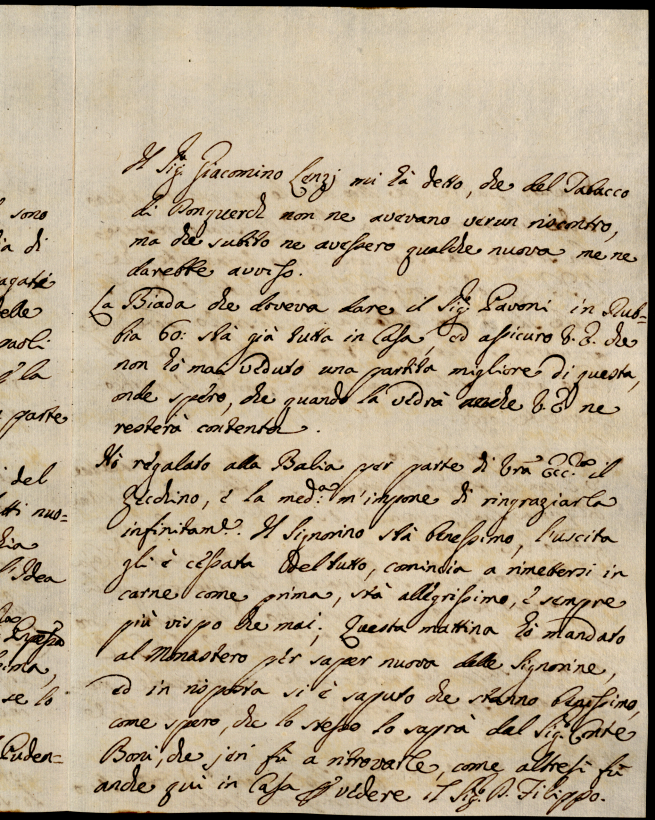 l sono
ia di
agati
elle
paoli
p la
a parte
i del
tti nuo=
hia
l'Idea
spesa
sima,
se lo
Puden=
Il Sig.r Giacomino Lenzj mi hà detto, che del Tabacco
di Ponquerch non ne avevano verun riscontro,
ma che subito ne avessero qualche nuova me ne
darebbe avviso.
La Biada che doveva dare il Sig.r Pavoni in Rub=
bia 60: stà già tutta in Casa, ed assicuro V. E. che
non hò mai veduto una partita migliore di questa,
onde spero, che quando la vedrà anche V. E. ne
resterà contenta.
Hò regalato alla Balia per parte di Vrã Ecc.za il
Zecchino, e la med.a m'impone di ringraziarla
infinitam.e. Il Signorino stà benissimo, l'uscita
gli è cessata del tutto, comincia a rimettersi in
carne come prima, stà allegrissimo, e sempre
più vispo che mai; Questa mattina hò mandato
al Monastero per saper nuova delle Signorine,
ed in risposta si è saputo che stanno benissimo,
come spero, che lo stesso lo saprà dal Sig.r Conte
Boni, che jeri fù a ritrovarle, come altresì fù
anche quì in Casa p vedere il Sig.r D. Filippo.